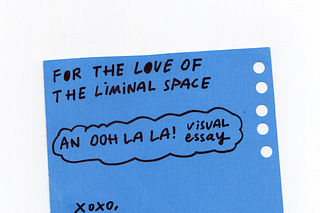 FOR THE LOVE OF
THE LiMiNAL SPACE
AN OOH LA LA! ViSUAL
essay
xoxo,